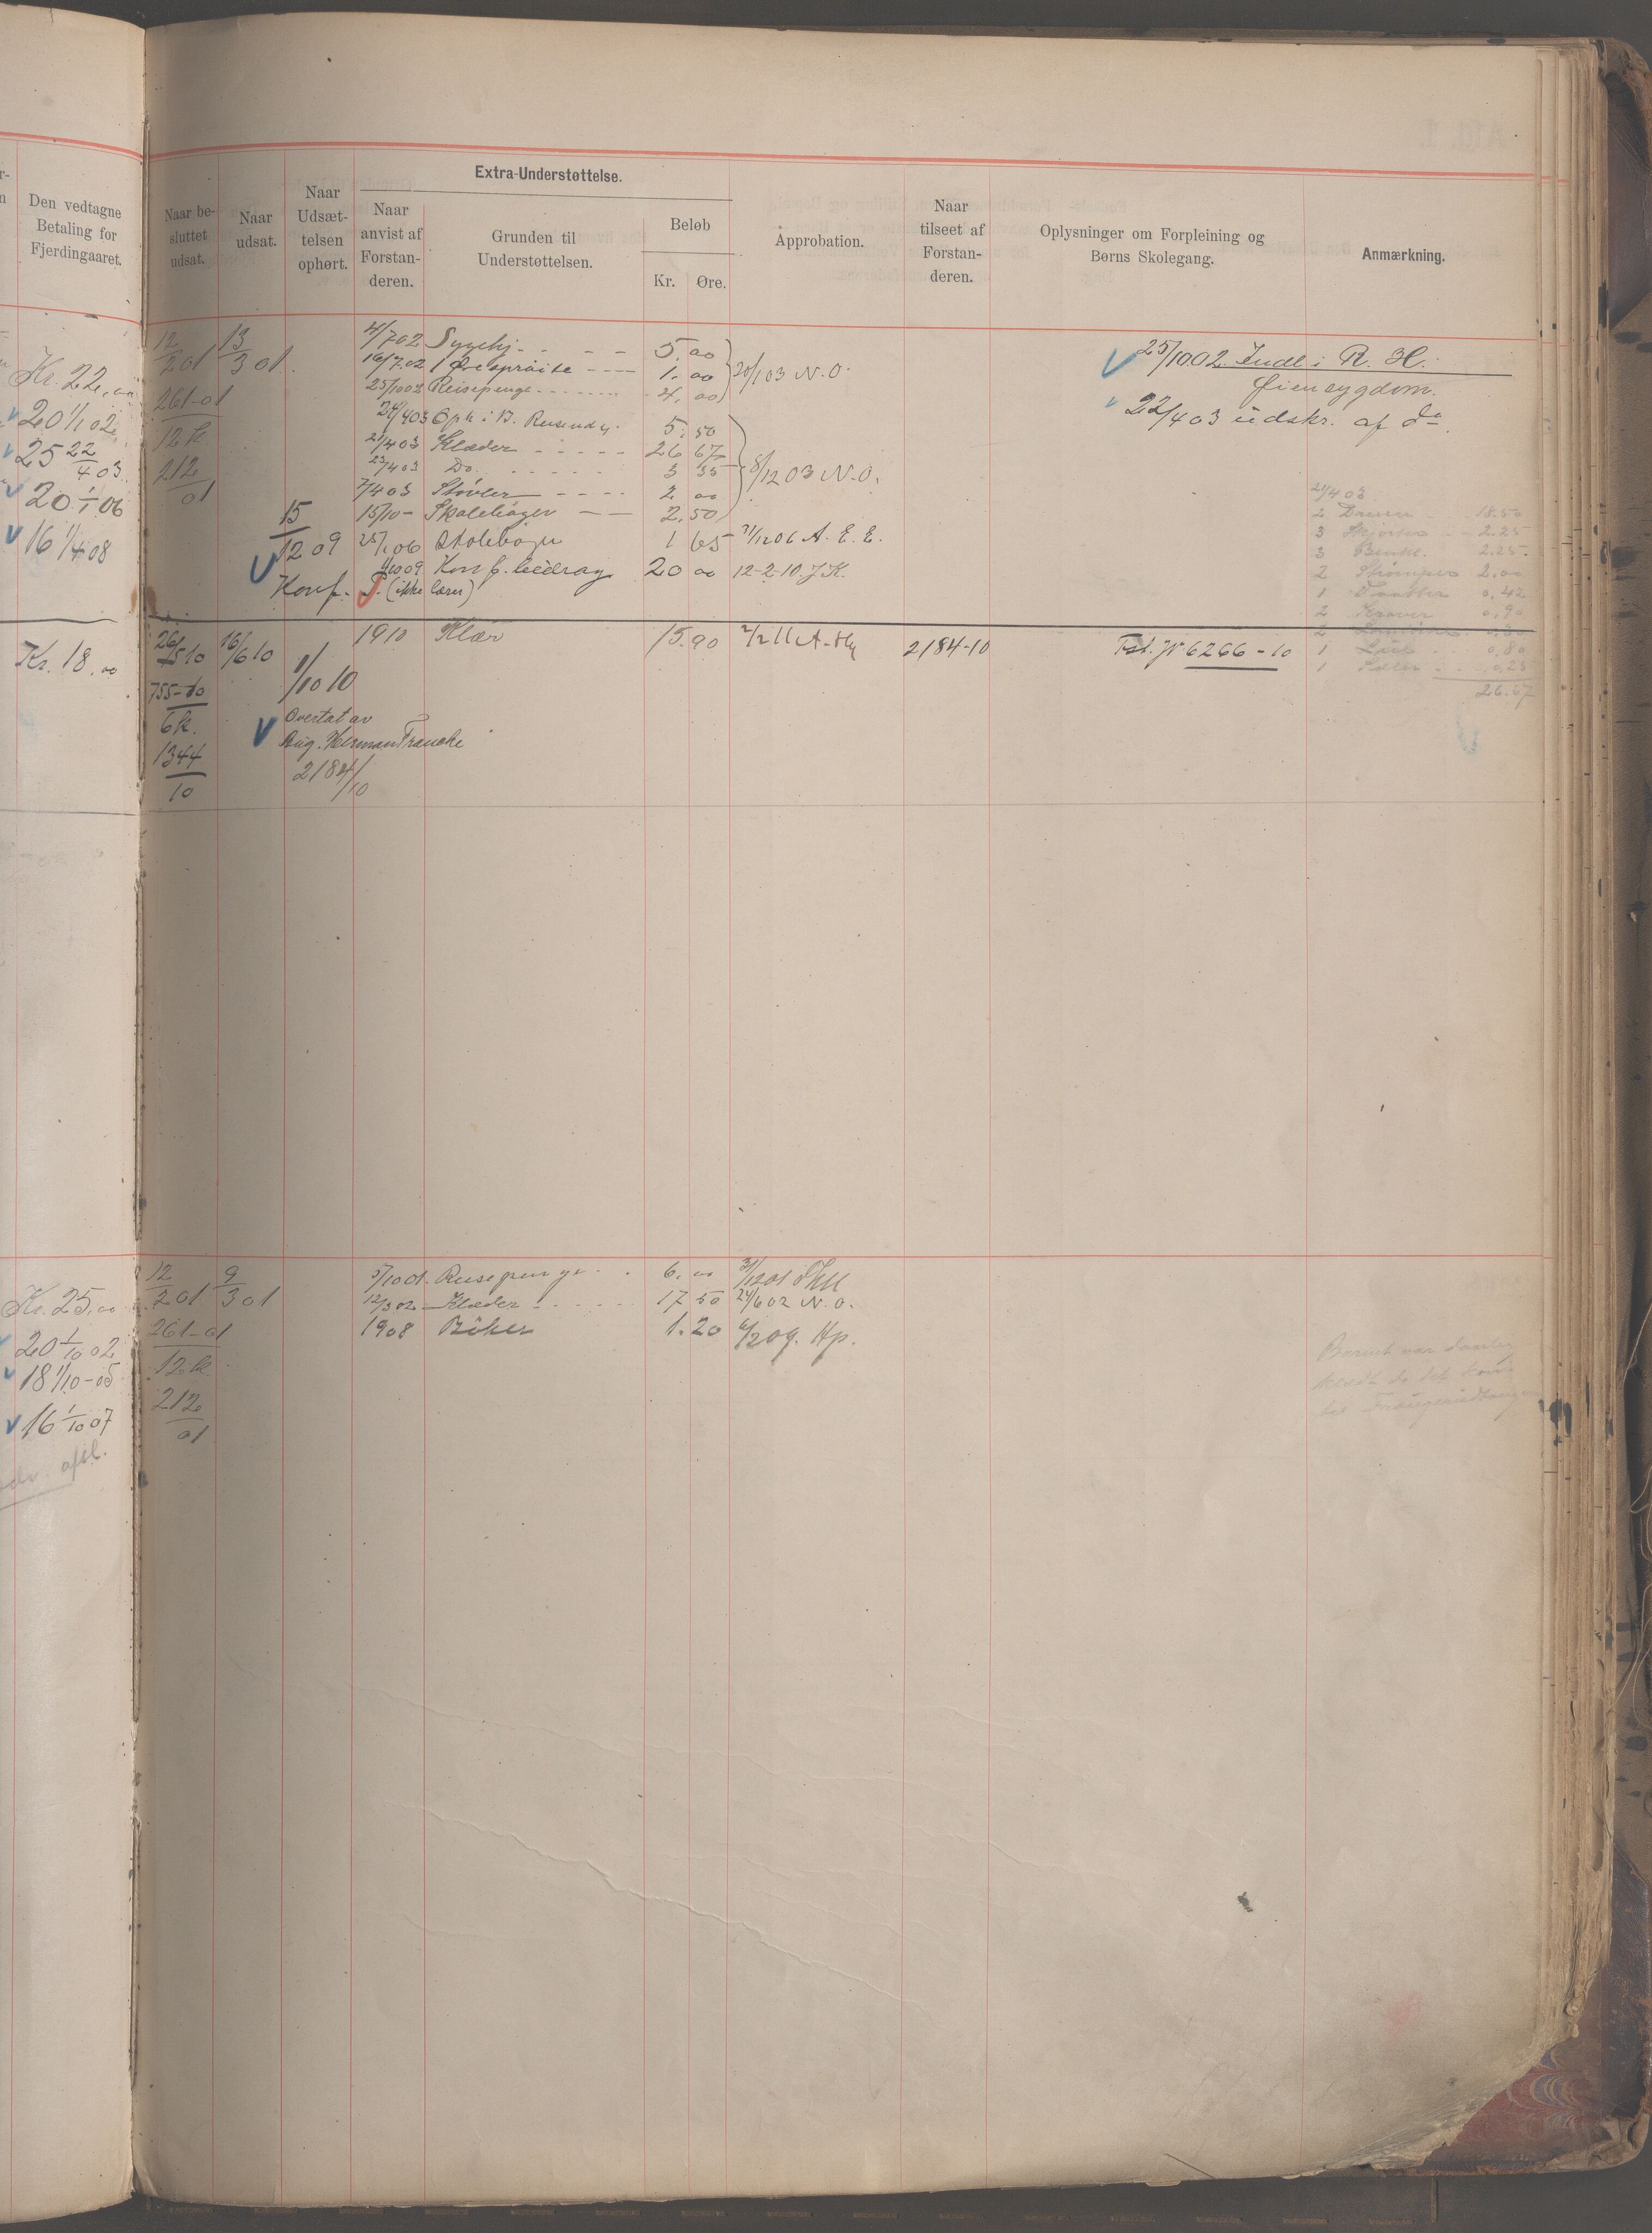 Den vedtagne
Betaling for
Fjerdingaaret.
Naar be-
sluttet
udsat.
Naar
udsat.
Naar
Udsæt-
telsen
ophørt.
Extra-Understøttelse.
Naar
anvist af
Forstan-
deren.
Grunden til
Understøttelsen.
Beløb
Kr. Øre.
Approbation.
Naar
tilseet af
Forstan-
deren.
Oplysninger om Forpleining og
Børns Skolegang.
Anmærkning.
Kr. 22,00
20 1/1 02
25 22/4 03
20 1/1 06
16 1/4 08
12/2 01 13/3 01.
261-01
12 k
212
01
4/7 02 Sygehj. 5.00
16/7.02 1 Øresprøite 1.00 20/1 03 N.O.
25/10 02 Reisepenge 4.00
24/4 03 Oph. i B. 5.50
21/4 03 Klæder 26 67
23/4 03 Do. 3 35 8/12 03 N.O.
7/4 03 Støvler 2 00
15/10 - Skolebøger 2.50
25/1 06 Skolebøger 1 65 31/12 06 A.E.E.
09 Konf. bidrag 20 00 12-2-10. J.K.
15/12 09
Konf. (ikke
25/10 02 Indl. i R. H.
Øiensygdom.
22/4 03 udskr. af do.
21/4 03.
2 18.50
3 2.25
3 2.25.
2 Strømper 2.00
1 0,42
2 Kraver 0,90
2
1 0,80
1 0,25
26.67
Kr. 18,00
26/5 10 16/6 10
755-10
6 k.
1344
10
1/10 10
Overtat av
Aug. Herman Francke
2184/10
1910 Klær 15.90 2184-10 6266-10
Kr. 25,00
20 1/10 02
18 1/10-05
16 1/10 07
12/2 01 9/3 01
261-01
12 k
212
01
5/10 01. Reisepenge 6.00 31/12 01
12/3 02 Klæder 17 50 24/6 02 N.O.
1908 Bøker 1.20 6/2 09. Hp.
Barnet var daarlig
klædt da det kom